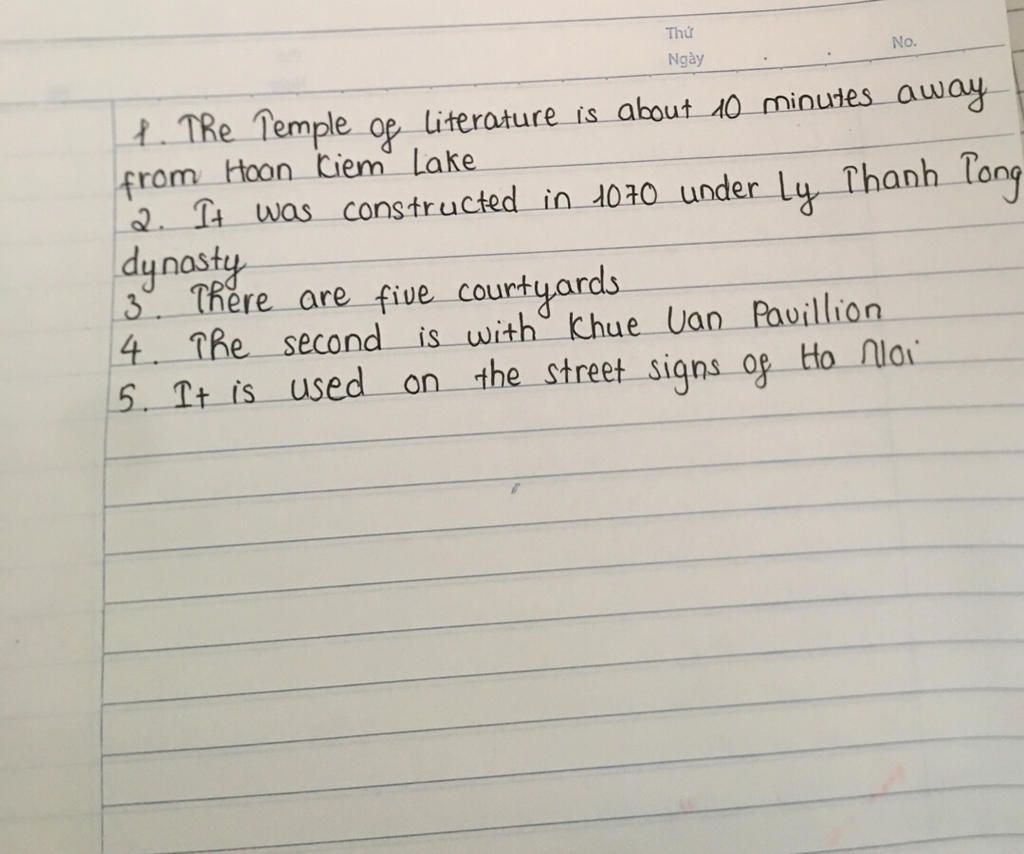 Thứ
Ngày . . No.
1. The Temple of literature is about 10 minutes away
from Hoan Kiem Lake
2. It was constructed in 1070 under Ly Thanh Tong
dynasty
3. There are five courtyards
4. The second is with Khue Van Pavillion
5. It is used on the street signs of Ha Noi